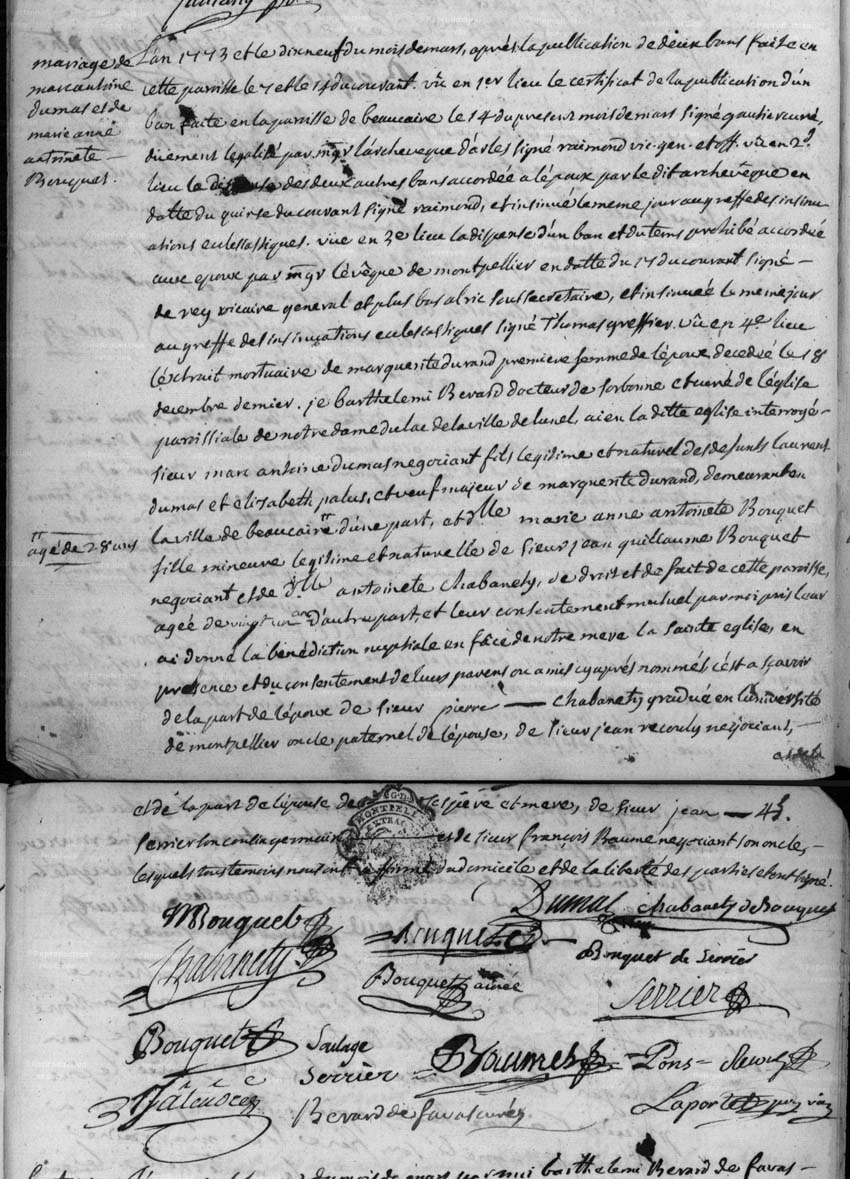 mariage de
marc antoine
dumas et de
marie anne
antoinete
Bouquet.
L'an 1773 et le dixneuf du mois de mars, aprés la publication de deux bans faite en
cette paroisse le 7 et le 14 du courant. vû en 1er lieu le certificat de la publication d'un
ban faite en la paroisse de beaucaire le 14 du present mois de mars signé gautier curé,
düement legalisé par mgr l'archeveque d'arles signé raimond vic. gen. et off. vû en 2d
lieu la dispense des deux autres bans accordée a l'époux par le dit archevêque en
datte du quinse du courant signé raimond, et insinué le meme jour au greffe des insinu
ations eclesiastiques. vüe en 3e lieu la dispense d'un ban et du tems prohibé accordée
aux epoux par mgr l'évêque de montpellier en datte du 17 du courant signé -
de rey vicaire general et plus bas alric sous secretaire, et insinuée le meme jour
au greffe des insinuations eclesiastiques signé Thomas greffier. vû en 4e lieu
l'éxtrait mortuaire de marguerite durand premiere femme de l'époux decedée le 18
decembre dernier. je barthelemi Bevard docteur de sorbonne et curé de l'église
paroissiale de notre dame du lac de la ville de lunel, ai en la ditte eglise interrogé -
sieur marc antoine dumas negociant fils legitime et naturel des defunts laurent
dumas et elisabeth palus, et veuf majeur de marguerite durand, demeurant en
la ville de beaucaire d'une part, et dlle marie anne antoinete Bouquet
agé de 28 ans
fille mineure legitime et naturelle de sieur jean guillaume Bouquet
negociant et de dlle antoinete Chabanety, de droit et de fait de cette paroisse,
agée de vingt un an d'autre part, et leur consentement mutuel par moi pris leur
ai donné la bénédiction nuptiale en face de notre mere la sainte eglise, en
presence et du consentement de leurs parens ou amis cy aprés nommés c'est a sçavoir
de la part de l'époux de sieur pierre — Chabanety gradué en l'université
de montpellier oncle paternel de l'épouse, de sieur jean recouly negociant, -
et de la part de l'épouse de ses pere et mere, de sieur jean —
Serrier son cousin germain et de sieur françois Baume negociant son oncle, -
lesquels tous temoins nous ont affirmé du domicile et de la liberté des parties et ont signé.
Dumas chabanety de Bouquet
MBouquet
Chabanety
Bouquet
Bouquet de Serrier
Bouquet ainée
Serrier
Bouquet
Soulage
Serrier
Baumes
Pons
Bevard de favas curé
Laporte
du mois de mars par moi barthelemi Bevard de favas -